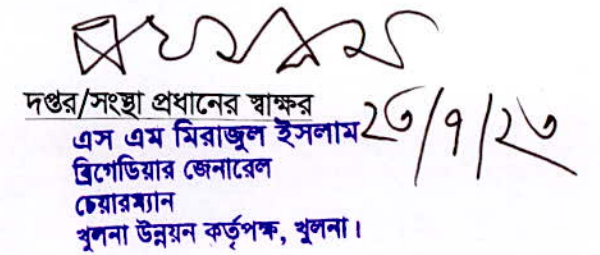 দপ্তর/সংস্থা প্রধানের স্বাক্ষর
এস এম মিরাজুল ইসলাম ২৩/৭/২৩
ব্রিগেডিয়ার জেনারেল
চেয়ারম্যান
খুলনা উন্নয়ন কর্তৃপক্ষ, খুলনা।